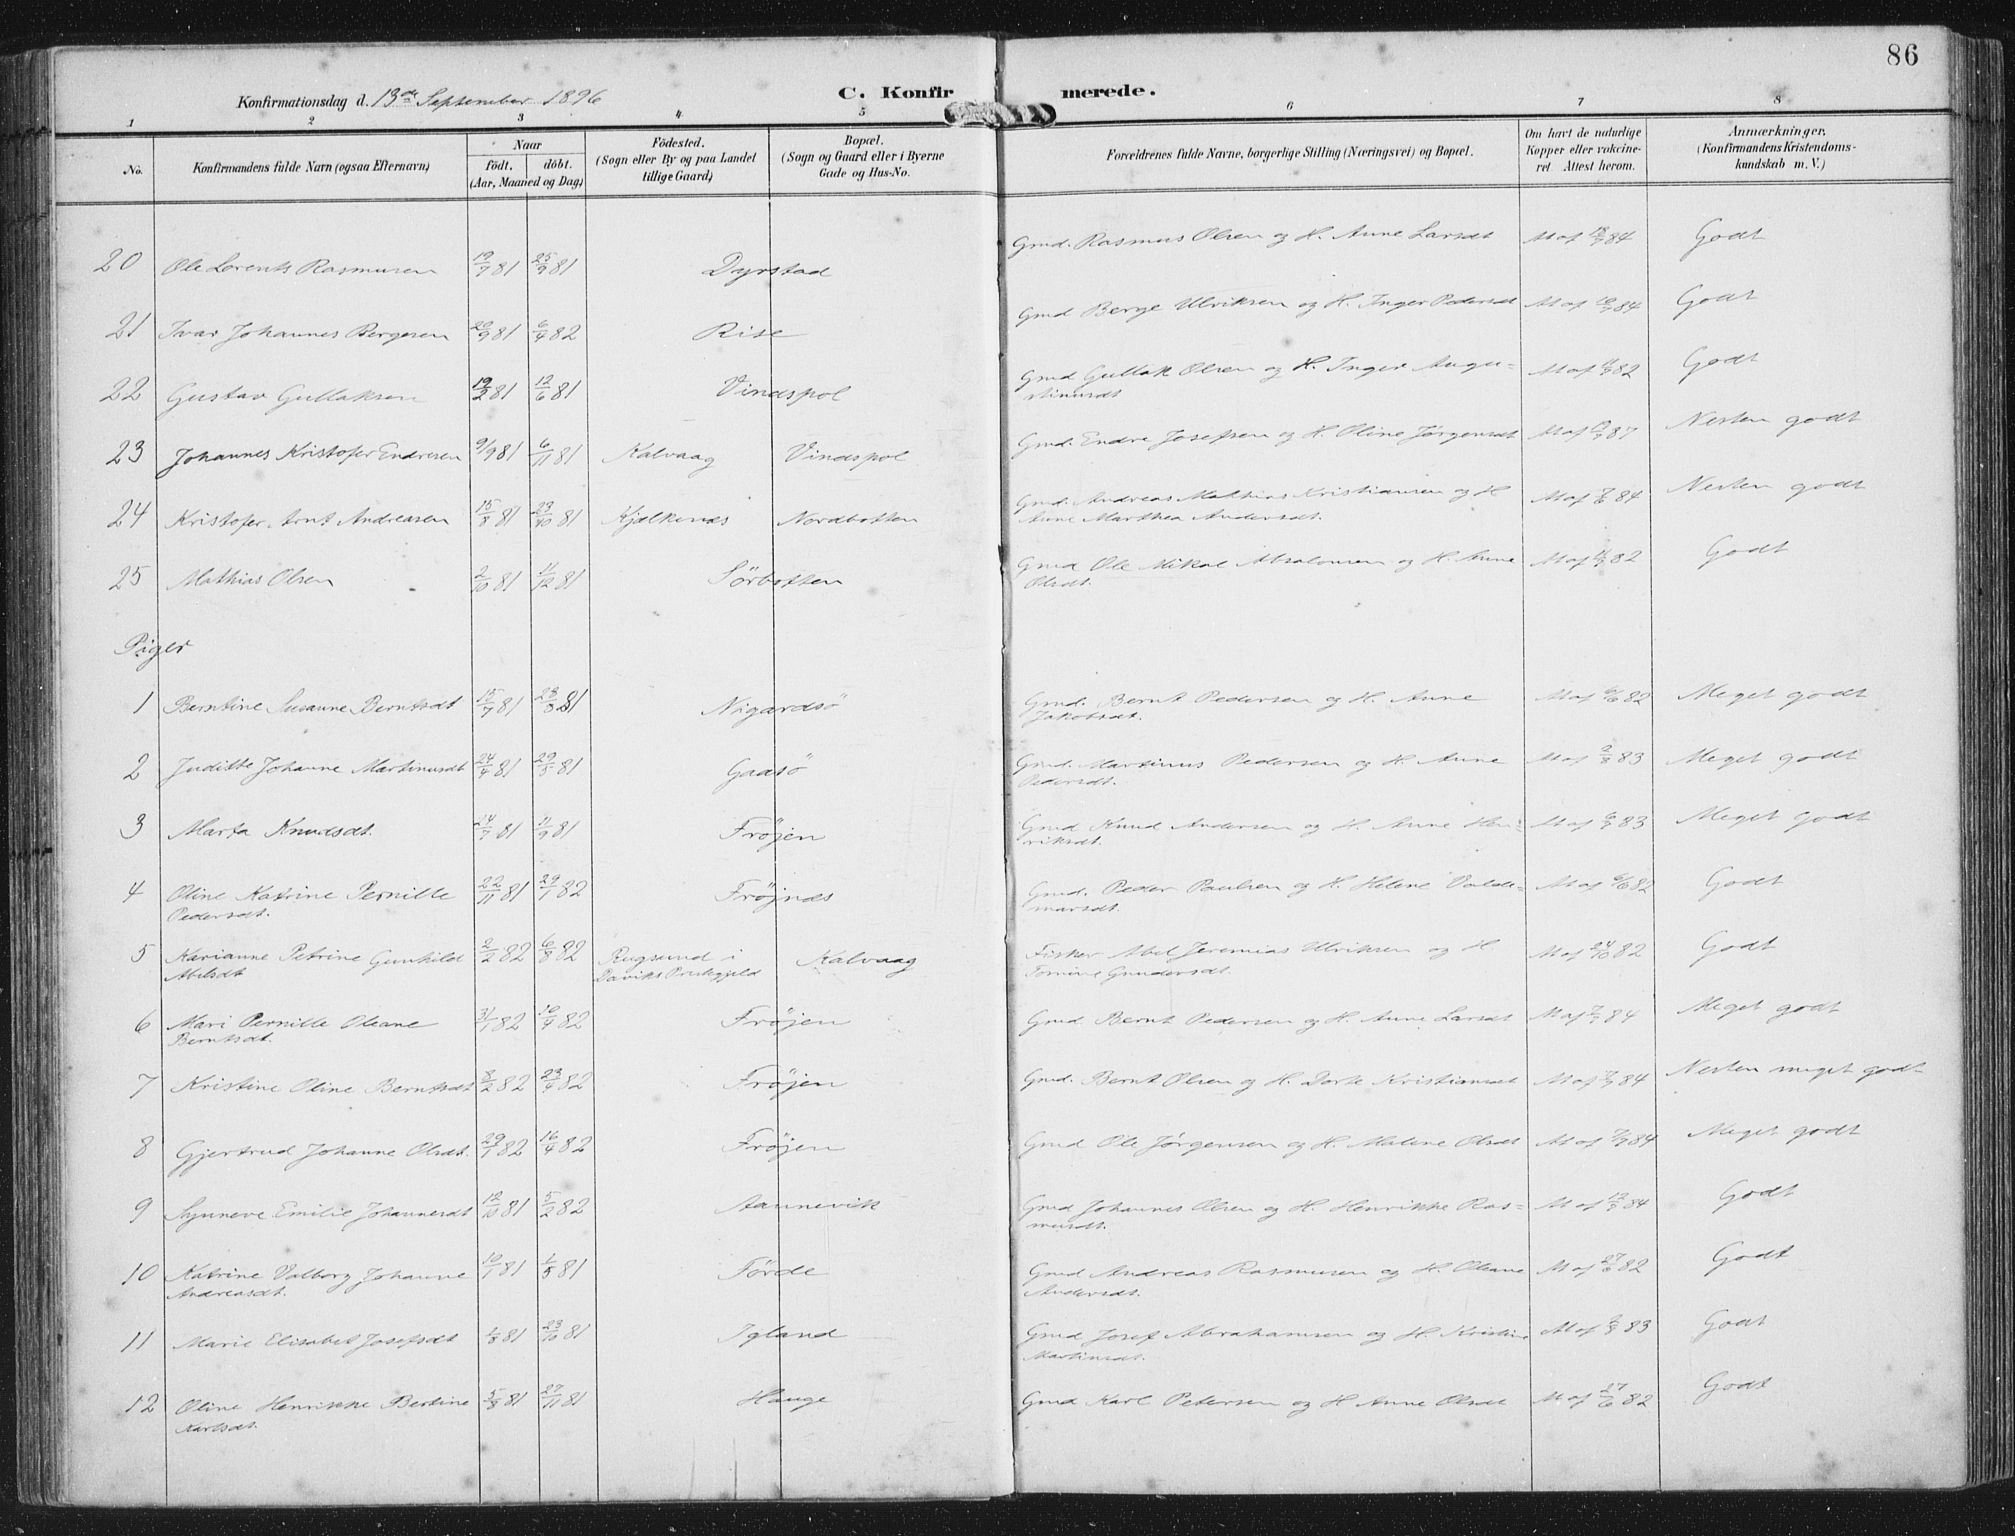 86
Konfirmationsdag d. 13de September 1896
C. Konfirmerede.
1 2 3 4 5 6 7 8
No.
Konfirmandens fulde Navn (ogsaa Efternavn)
Naar
födt. döbt.
(Aar, Maaned og Dag)
Födested.
(Sogn eller By og paa Landet
tillige Gaard)
Bopæl.
(Sogn og Gaard eller i Byerne
Gade og Hus-No.
Forældrenes fulde Navne, borgerlige Stilling (Næringsvei) og Bopæl.
Om havt de naturlige
Kopper eller vakcine-
ret. Attest herom.
Anmærkninger.
(Konfirmandens Kristendoms-
kundskab m. V.)
20 Ole Lorents Rasmusen 19/7 81 25/9 81 Dyrstad Gmd. Rasmus Olsen og H. Anne Larsdt M af 18/7 84 Godt
21 Ivar Johannes Bergesen 20/9 81 6/4 82 Rise Gmd Berge Ulriksen og H. Inger Pedersdt M af 84 Godt
22 Gustav Gullaksen 19/2 81 12/6 81 Vindspol Gmd Gullak Olsen og H. Inger Augu-
stinusdt M af 82 Godt
23 Johannes Kristofer Endresen 9/9 81 6/11 81 Kalvaag Vindspol Gmd. Endre Josefsen og H. Oline Jørgensdt M af 87 Nesten godt
24 Kristofer Arnt Andreasen 15/8 81 23/10 81 Kjælkenæs Nordbotten Gmd. Andreas Mathias Kristiansen og H
Anne Marthea Andersdt. M af 84 Nesten godt
25 Mathias Olsen 2/10 81 11/12 81 Sörbotten Gmd Ole Mikal Absalonsen og H. Anne
Olsdt. M af 82 Godt
Piger
1 Berntine Susanne Berntsdt 15/7 81 28/8 81 Nigardsö Gmd. Bernt Pedersen og H. Anne
Jakobsdt. M af 82 Meget godt
2 Juditte Johanne Martinusdt 24/4 81 29/5 81 Gaasö Gmd. Martinus Pedersen og H. Anne
Pedersdt. M af 2/8 83 Meget godt
3 Marta Knudsdt. 24/7 81 11/9 81 Fröjen Gmd Knud Andersen og H. Anne Hen-
riksdt. M af 83 Meget godt
4 Oline Katrine Pernille
Pedersdt. 22/11 81 29/1 82 Fröjnæs Gmd. Peder Paulsen og H. Helene Valde-
marsdt. M af 82 Godt
5 Karianne Petrine Gunhild
Abelsdt 2/2 82 6/8 82 Rugsund i
Daviks Prestegjeld Kalvaag Fisker Abel Jeremias Ulriksen og H
Tomine Gundersdt. M af 24/10 82 Godt
6 Mari Pernille Oleane
Berntsdt. 31/1 82 10/4 82 Fröjen Gmd. Bernt Pedersen og H. Anne Larsdt M af 84 Meget godt
7 Kristine Oline Berntsdt 8/2 82 23/4 82 Fröjen Gmd. Bernt Olsen og H. Dorte Kristiansdt M af 84 Nesten meget godt
8 Gjertrud Johanne Olsdt. 29/1 82 16/4 82 Fröjen Gmd Ole Jørgensen og H. Malene Olsdt M af 84 Meget godt
9 Synneve Emilie Johannesdt 12/10 81 5/2 82 Aannevik Gmd Johannes Olsen og H. Henrikke Ras-
musdt. M af 84 Godt
10 Katrine Valborg Johanne
Andreasdt. 10/1 81 1/5 81 Förde Gmd Andreas Rasmusen og H. Oleane
Andersdt. M af 27/6 82 Godt
11 Marie Elisabet Josefsdt 1/8 81 23/10 81 Igland Gmd Josef Abrahamsen og H. Kristine
Martinsdt. M af 83 Godt
12 Oline Henrikke Bertine
Karlsdt. 5/8 81 27/11 81 Hauge Gmd Karl Petersen og H Anne Olsdt M af 27/6 82 Godt